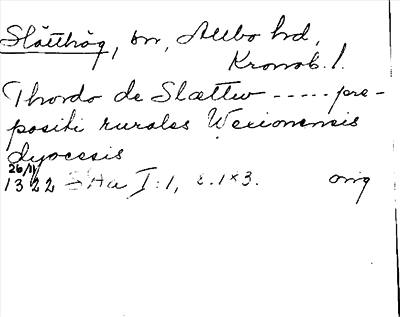 Slätthög, sn, Allbo hd,
Kronob. l.
Thordo de Slættw ----- pre-
positi rurales Wexionensis
dyocesis
26/11
1322 SHa I:1, s. 1×3. orig